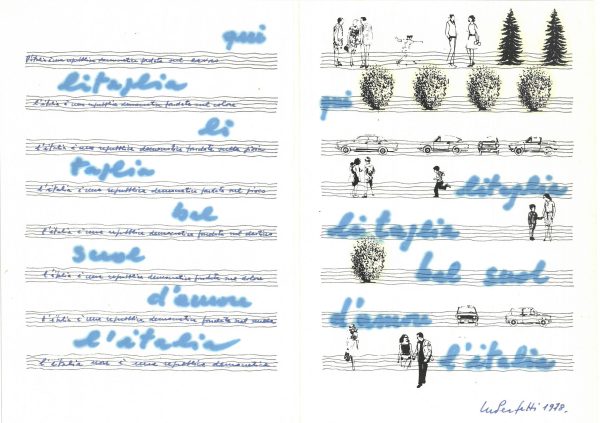 qui
l'italia è una repubblica democratica fondata sul lavoro
litaglia
l'italia è una repubblica democratica fondata sul
li
l'italia è una repubblica democratica fondata sulla
taglia
l'italia è una repubblica democratica fondata sul
bel
l'italia è una repubblica democratica fondata sul destino
suol
l'italia è una repubblica democratica fondata sul
d'amore
l'italia è una repubblica democratica fondata sul nulla
l'italia
l'italia non è una repubblica democratica
qui
litaglia
li taglia
bel suol
d'amore
l'italia
Perfetti 1978.